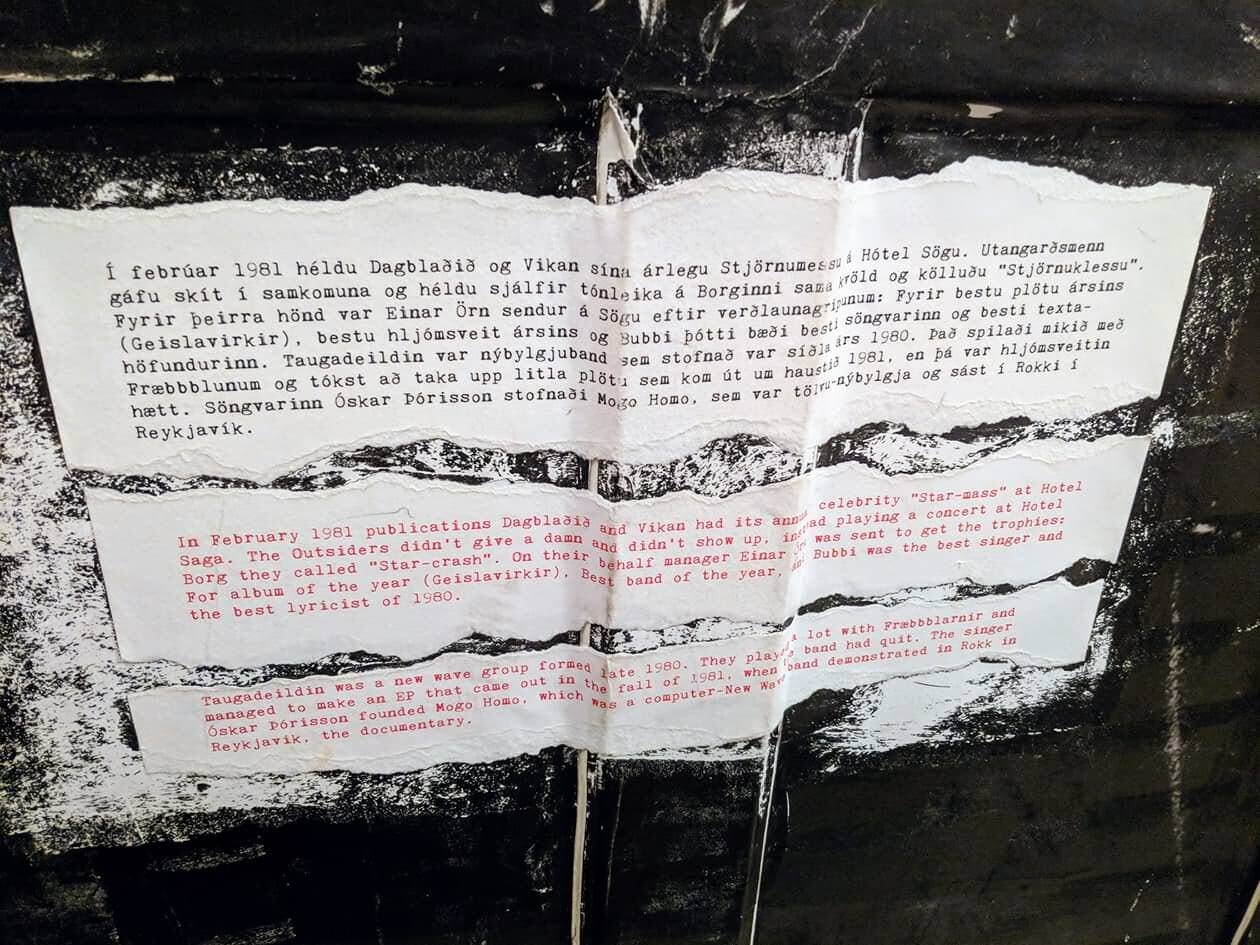 Í febrúar 1981 héldu Dagblaðið og Vikan sína árlegu Stjörnumessu á Hótel Sögu. Utangarðsmenn
gáfu skít í samkomuna og héldu sjálfir tónleika á Borginni sama kvöld og kölluðu "Stjörnuklessu".
Fyrir þeirra hönd var Einar Örn sendur á Sögu eftir verðlaunagripunum: Fyrir bestu plötu ársins
(Geislavirkir), bestu hljómsveit ársins og Bubbi þótti bæði besti söngvarinn og besti texta-
höfundurinn. Taugadeildin var nýbylgjuband sem stofnað var síðla árs 1980. Það spilaði mikið með
Fræbbblunum og tókst að taka upp litla plötu sem kom út um haustið 1981, en þá var hljómsveitin
hætt. Söngvarinn Óskar Þórisson stofnaði Mogo Homo, sem var tölvu-nýbylgja og sást í Rokki í
Reykjavík.
In February 1981 publications Dagblaðið and Vikan had its annu celebrity "Star-mass" at Hotel
Saga. The Outsiders didn't give a damn and didn't show up, instead playing a concert at Hotel
Borg they called "Star-crash". On their behalf manager Einar Örn was sent to get the trophies:
For album of the year (Geislavirkir), Best band of the year, and Bubbi was the best singer and
the best lyricist of 1980.
Taugadeildin was a new wave group formed late 1980. They played a lot with Fræbbblarnir and
managed to make an EP that came out in the fall of 1981, when band had quit. The singer
Óskar Þórisson founded Mogo Homo, which was a computer-New Wave band demonstrated in Rokk in
Reykjavík. the documentary.